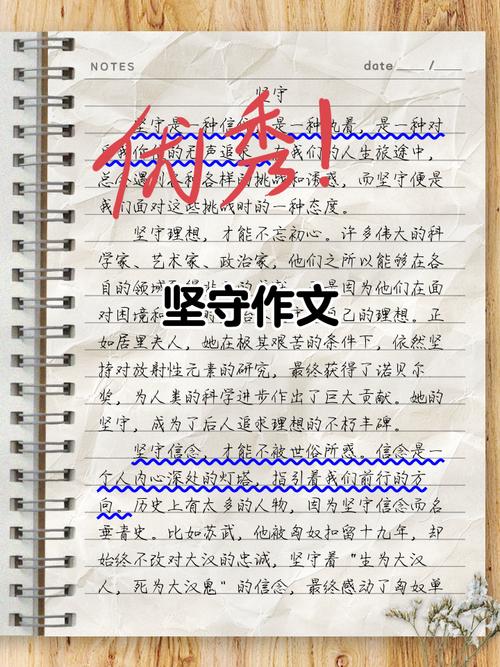 NOTES
date ____ / ___
坚守
优秀！
坚守是一种信 是一种执着，是一种对
的无声追求 在我们的人生旅途中，
总 遇到 各样的挑战和诱惑，而坚守便是
我们面对这些挑战时的一种态度。
坚守理想，才能不忘初心。许多伟大的科
学家、艺术家、政治家，他们之所以能够在各
自的领域 是因为他们在面
坚守作文
对困境和 自己的理想。正
如居里夫人，她在极其艰苦的条件下，依然坚
持对放射性元素的研究，最终获得了诺贝尔
奖，为人类的科学进步作出了巨大贡献。她的
坚守，成为了后人追求理想的不朽丰碑。
坚守信念，才能不被世俗所惑。信念是一
个人内心深处的灯塔，指引着我们前行的方
向。历史上有太多的人物，因为坚守信念而名
垂青史。比如苏武，他被匈奴扣留十九年，却
始终不改对大汉的忠诚，坚守着“生为大汉
人，死为大汉鬼”的信念，最终感动了匈奴单